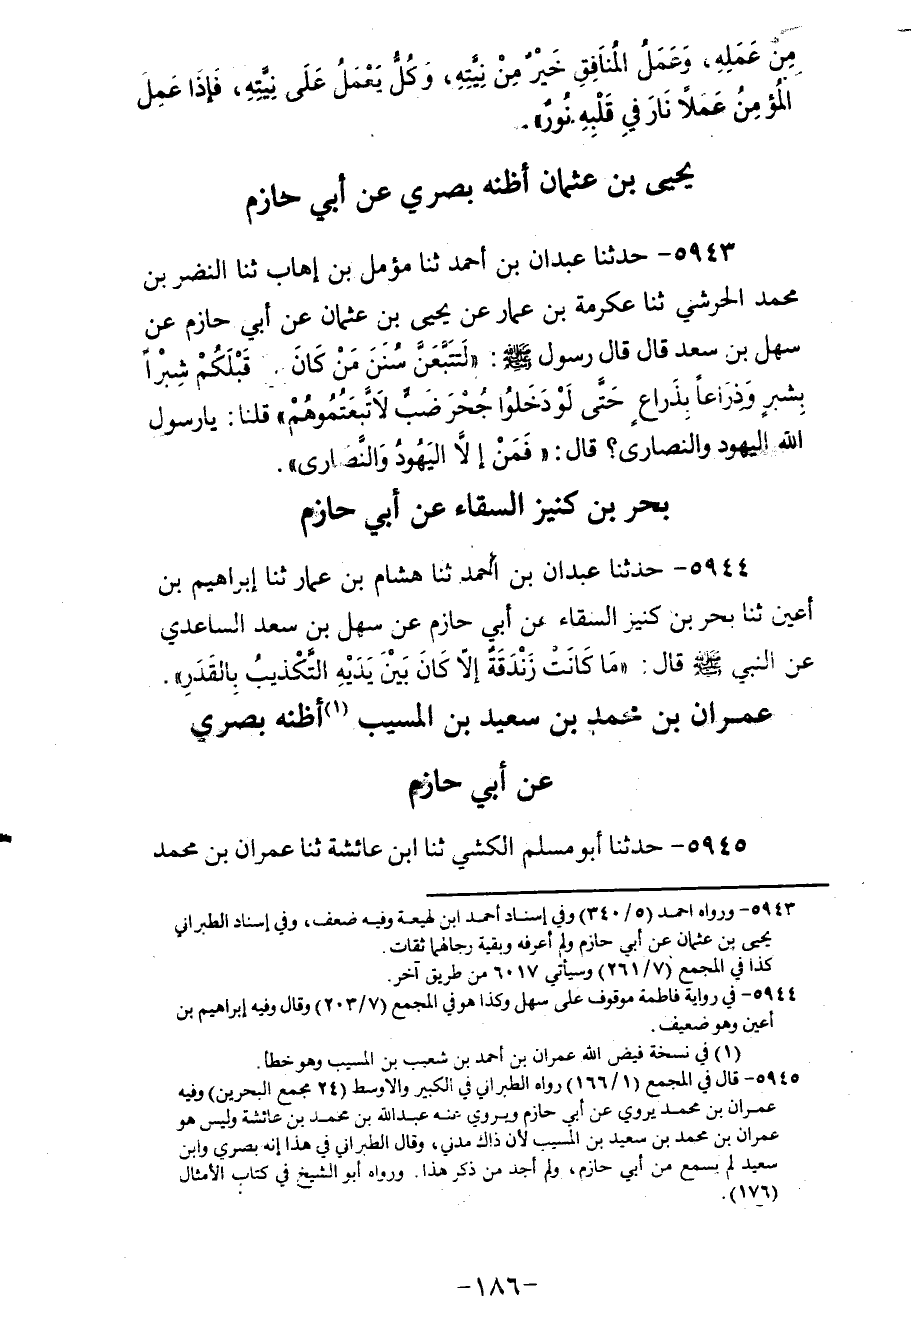 مِنْ عَمَلِهِ، وَعَمَلُ الْمُنَافِقِ خَيْرٌ مِنْ نِيَّتِهِ، وَكُلٌّ يَعْمَلُ عَلَى نِيَّتِهِ، فَإِذَا عَمِلَ
الْمُؤْمِنُ عَمَلًا نَارَ فِي قَلْبِهِ نُورٌ».
يحيى بن عثمان أظنه بصري عن أبي حازم
٥٩٤٣- حدثنا عبدان بن أحمد ثنا مؤمل بن إهاب ثنا النضر بن
محمد الحرشي ثنا عكرمة بن عمار عن يحيى بن عثمان عن أبي حازم عن
سهل بن سعد قال قال رسول ﷺ: «لَتَتَّبَعَنَّ سُنَنَ مَنْ كَانَ قَبْلَكُمْ شِبْراً
بِشِبْرٍ وَذِرَاعاً بِذَراعٍ حَتَّى لَوْ دَخَلُوا جُحْرَ ضَبٍّ لَاتَّبَعَتُمُوهُمْ» قلنا: يارسول
الله اليهود والنصارى؟ قال: «فَمَنْ إِلَّا اليَهُودُ وَالنَّصَارى».
بحر بن كنيز السقاء عن أبي حازم
٥٩٤٤- حدثنا عبدان بن أحمد ثنا هشام بن عمار ثنا إبراهيم بن
أعين ثنا بحر بن كنيز السقاء عن أبي حازم عن سهل بن سعد الساعدي
عن النبي ﷺ قال: «مَا كَانَتْ زَنْدَقَةٌ إلّا كَانَ بَيْنَ يَدَيْهِ التَّكْذيبُ بِالقَدَرِ».
عمران بن محمد بن سعيد بن المسيب (١) أظنه بصري
عن أبي حازم
٥٩٤٥- حدثنا أبو مسلم الكشي ثنا ابن عائشة ثنا عمران بن محمد
٥٩٤٣- ورواه احمد (٥/ ٣٤٠) وفي إسناد أحمد ابن لهيعة وفيه ضعف، وفي إسناد الطبراني
يحيى بن عثمان عن أبي حازم ولم أعرفه وبقية رجالهما ثقات.
كذا في المجمع (٧/ ٢٦١) وسيأتي ٦٠١٧ من طريق آخر.
٥٩٤٤- في رواية فاطمة موقوف على سهل وكذا هو في المجمع (٧/ ٢٠٣) وقال وفيه إبراهيم بن
أعين وهو ضعيف.
(١) في نسخة فيض الله عمران بن أحمد بن شعيب بن المسيب وهو خطأ.
٥٩٤٥- قال في المجمع (١/ ١٦٦) رواه الطبراني في الكبير والاوسط (٢٤ مجمع البحرين) وفيه
عمران بن محمد يروي عن أبي حازم ويروي عنه عبدالله بن محمد بن عائشة وليس هو
عمران بن محمد بن سعيد بن المسيب لأن ذاك مدني، وقال الطبراني في هذا إنه بصري وابن
سعيد لم يسمع من أبي حازم، ولم أجد من ذكر هذا. ورواه أبو الشيخ في كتاب الأمثال
(١٧٦).
-١٨٦-